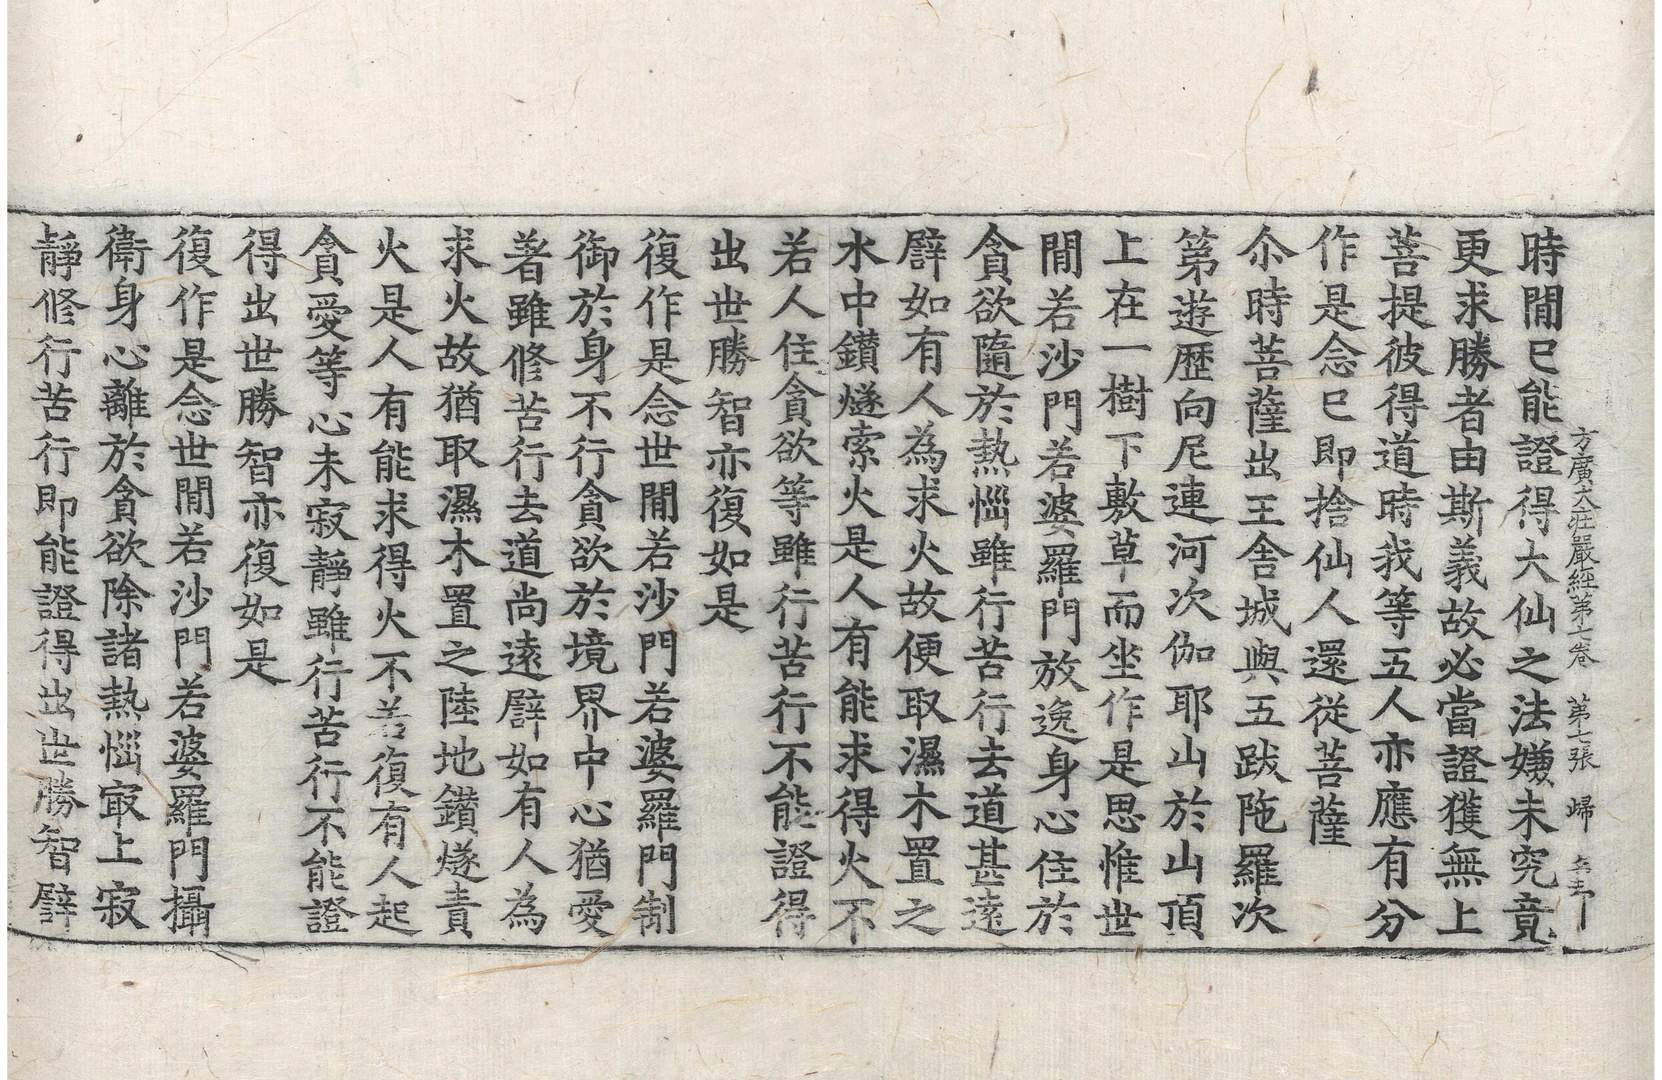 方廣大莊嚴經第七卷 第七張 歸
時閒已能證得大仙之法嫌未究竟
更求勝者由斯義故必當證獲無上
菩提彼得道時我等五人亦應有分
作是念已即捨仙人還從菩薩
尒時菩薩出王舍城與五跋陁羅次
第遊歷向尼連河次伽耶山於山頂
上在一樹下敷草而坐作是思惟世
閒若沙門若婆羅門放逸身心住於
貪欲隨於熱惱雖行苦行去道甚遠
譬如有人為求火故便取濕木置之
水中鑽燧索火是人有能求得火不
若人住貪欲等雖行苦行不能證得
出世勝智亦復如是
復作是念世閒若沙門若婆羅門制
御於身不行貪欲於境界中心猶愛
著雖修苦行去道尚遠譬如有人為
求火故猶取濕木置之陸地鑽燧責
火是人有能求得火不善復有人起
貪愛等心未寂靜雖行苦行不能證
得出世勝智亦復如是
復作是念世閒若沙門若婆羅門攝
衛身心離於貪欲除諸熱惱㝡上寂
靜修行苦行即能證得出世勝智譬